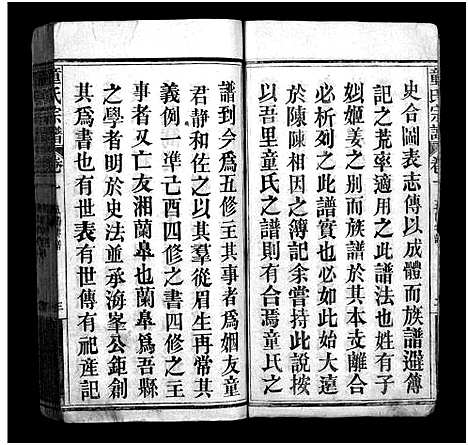 童氏宗譜 卷一
史合圖表志傳以成體而族譜遜傳
記之荒率適用也此譜法也些子
姒姬姜之別而族譜於其本支離合
必析列如此譜實也必如是始大遠
於陳陳相承之簿記余嘗持此說按
以吾里童氏之譜則有合焉童氏之
譜到今爲五修主其事者爲姻友童
君靜和佐之以其羣從眉生再常其
義例一準己酉四修之書四修之主
事者亡友湘蘭皋也蘭皋爲吾縣
之學者明於史法並承海峯公鉅創
其爲書也有世表有世傳有祀產記
童氏宗譜 卷一